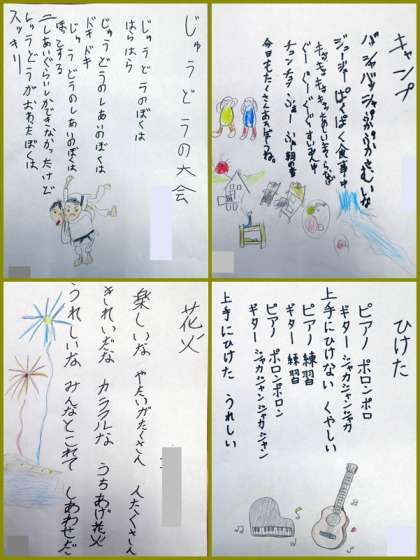 じゅうどうの大会
じゅうどうのぼくは
はらはら
じゅうどうのしあいのぼくは
ドキドキ
じゅうどうのしあいのぼくは
二しあいぐらいしかでなかったけど
じゅうどうがおわたぼくは
スッキリー
キャンプ
バシャバシャぷかぷかさむいな
ジュージューぱくぱく食事中
ぐーぐーぐーぐーすいみん中
チュンチュン ふぁーふぁー朝の音
今日もたくさんあそぼうね。
花火
楽しいな やたいがたくさん 人たくさん
きれいだな カラフルな うちあげ花火
うれしいな みんなとこれて しあわせだ
ひけた
ピアノ ポロンポロ
ギター シャカシャンシャカ
上手にひけない くやしい
ピアノ 練習
ギター 練習
ピアノ ポロンポロン
ギター シャカシャンシャカシャン
上手にひけた うれしい